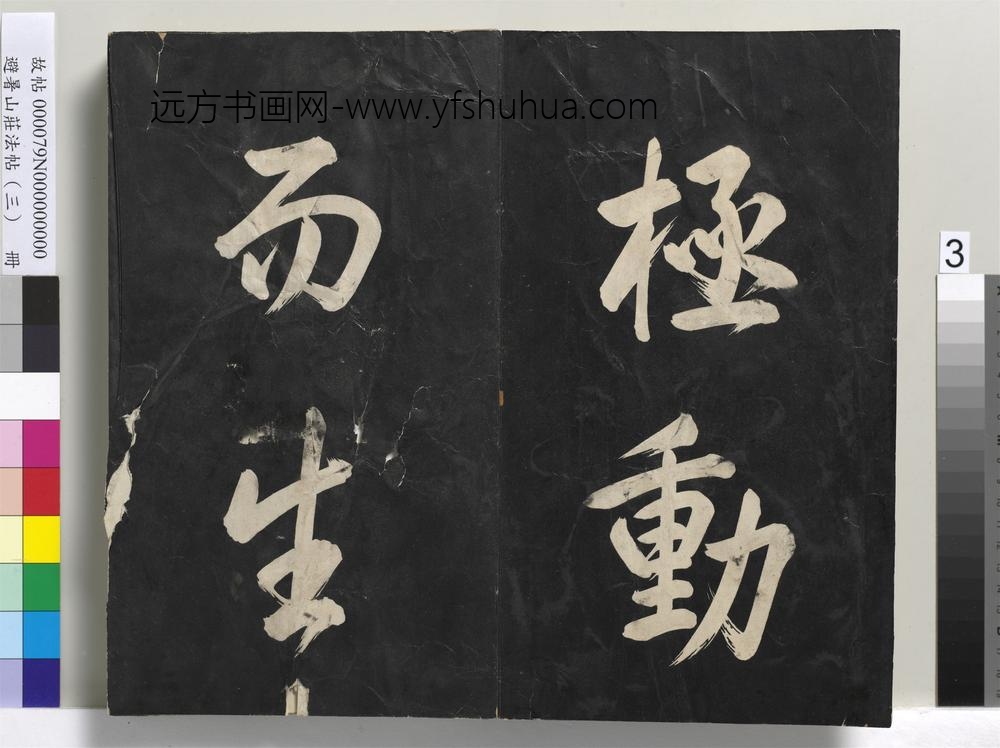 远方书画网-www.yfshuhua.com
極動
而生
故帖 000079N000000000
避暑山莊法帖（三） 冊
3